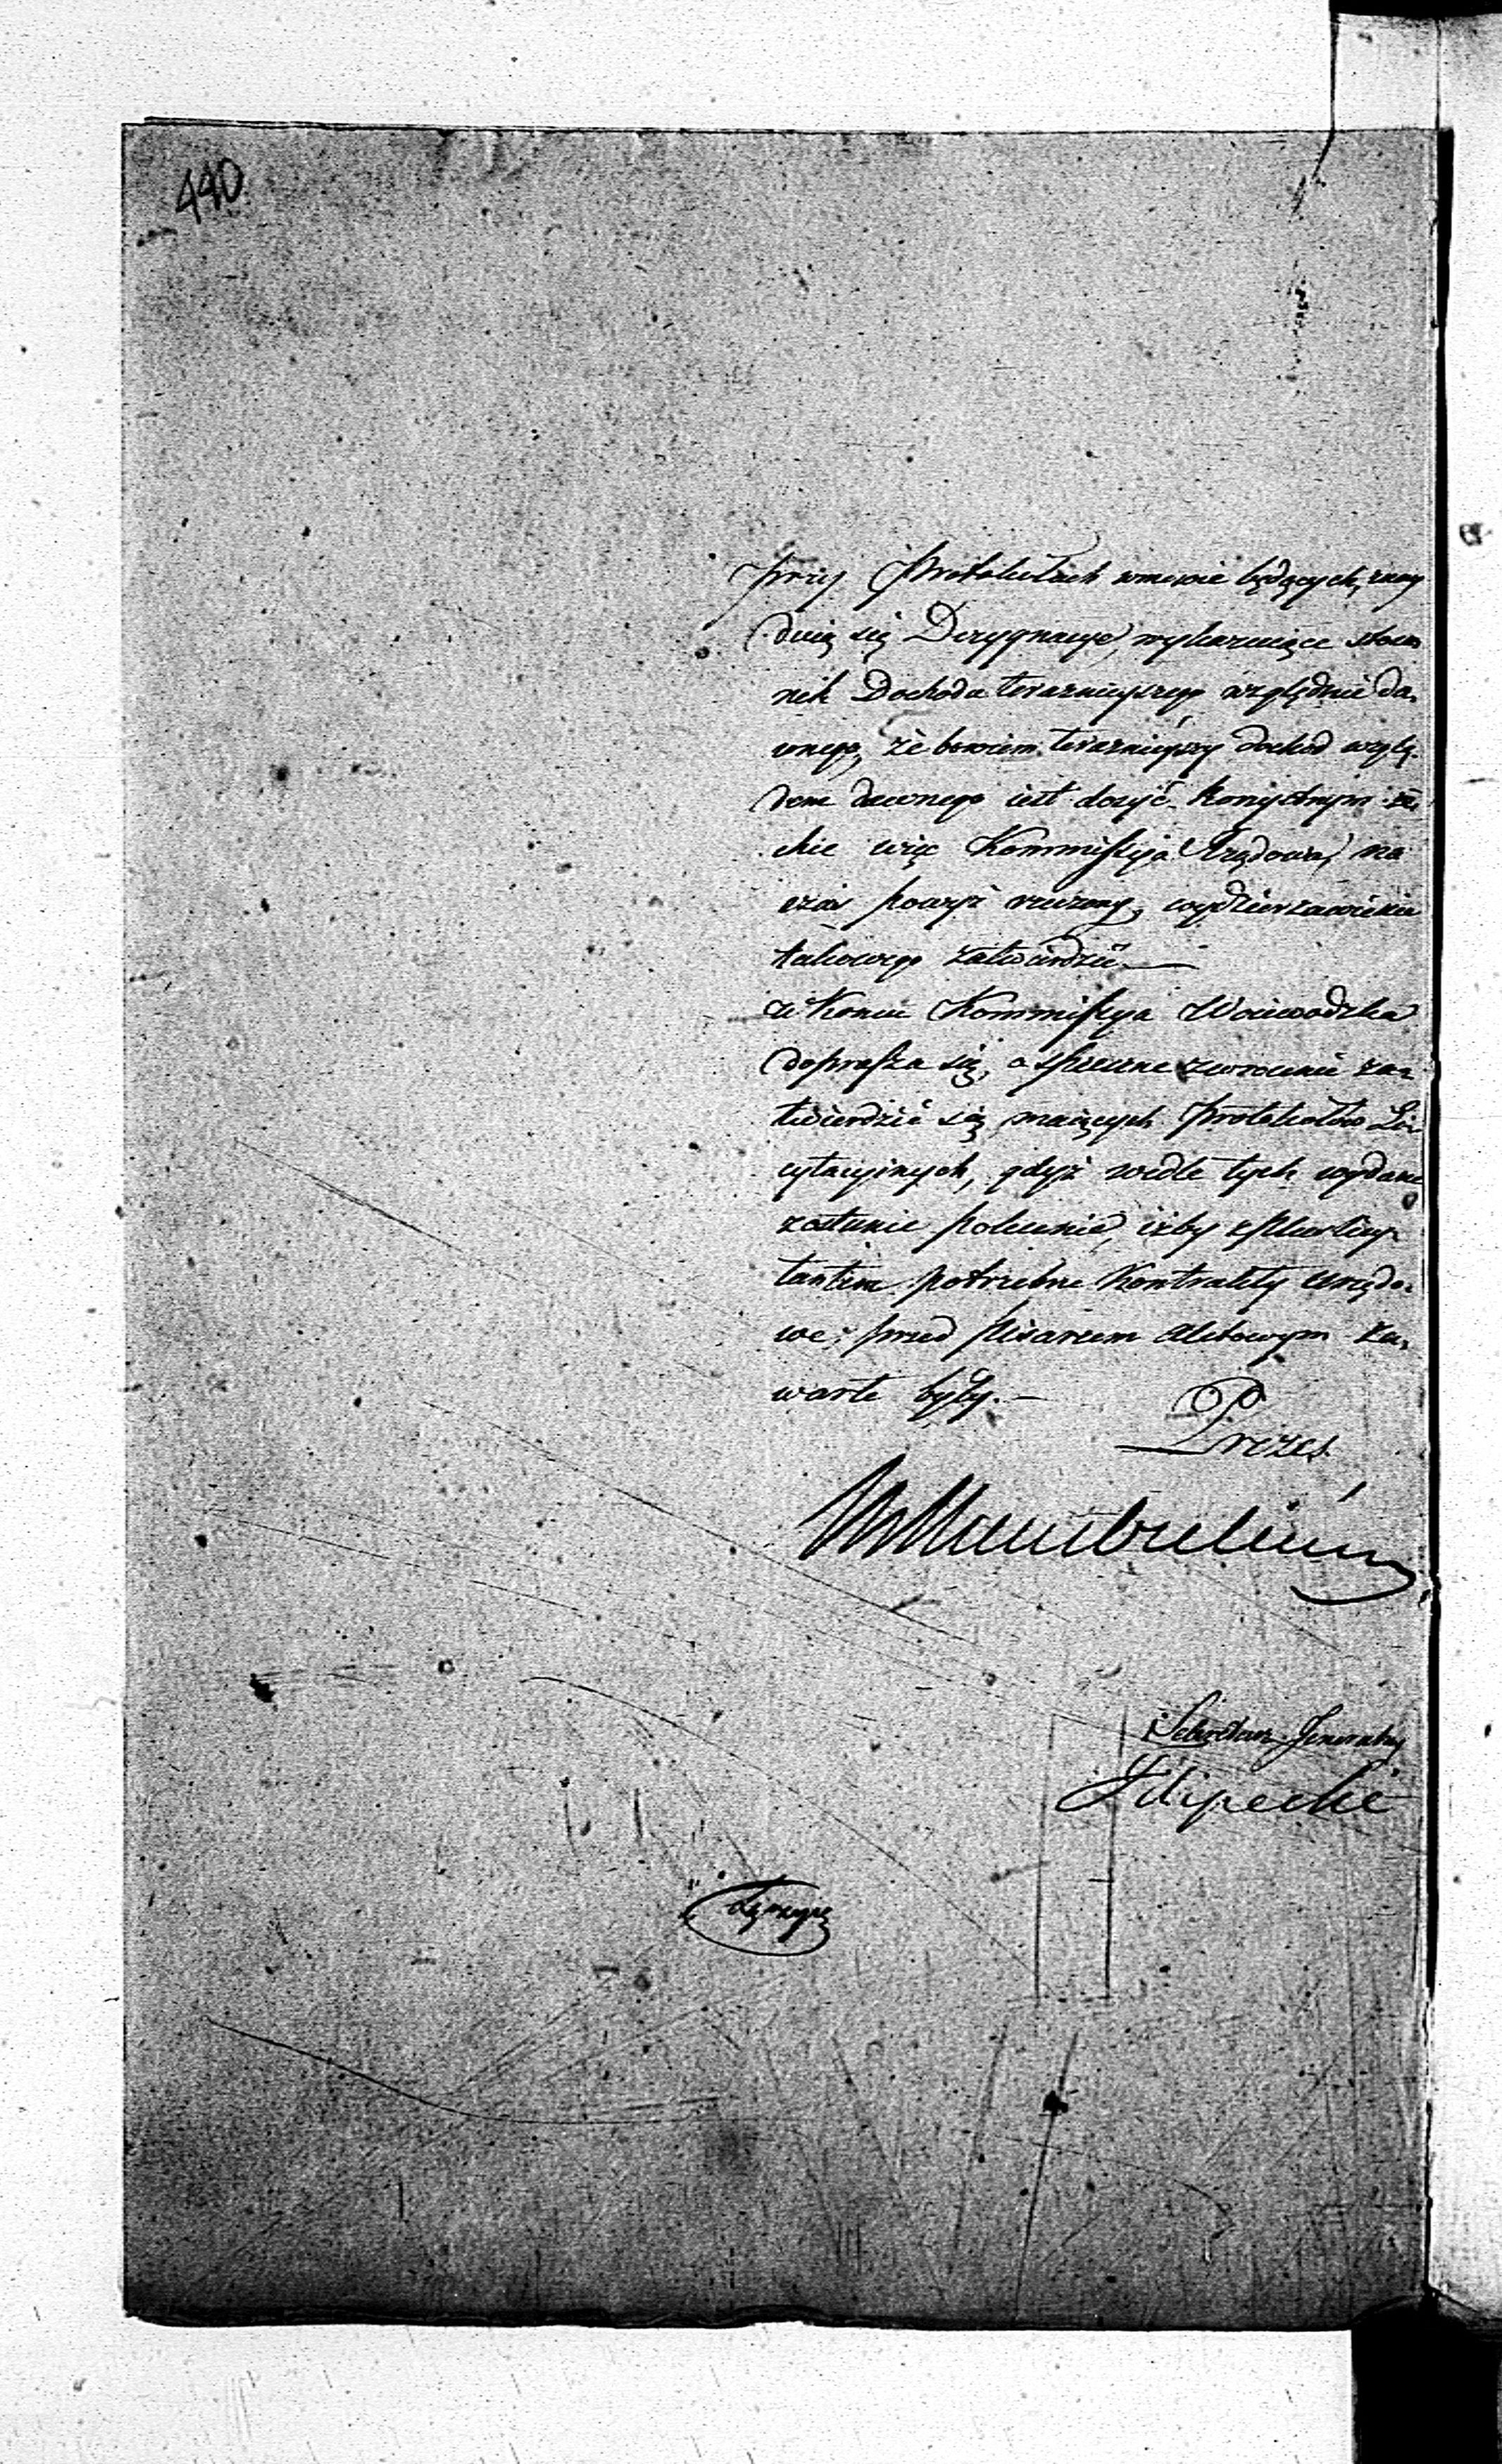 440
przy Protokułach wmowie będących, znay
duią się Dezygnacye, wykazuiące stosu
nek Dochodu teraznieyszego względnie da,
wnego, że bowiem teraznieyszy dochod wzglę,
dem dawnego iest dosyć korzystnym ze,
chce więc Kommissyja Rządowa, na
czas powyż rzeczony, wydzierzawienie
takowego zatwierdzić.—
w Koncu Kommissyja Woiewodzka
doprasza się, o spieszne zwrocenie za,
twierdzić się maiących Protokułów Li,
cytacyinych, gdyż wedle tych wydane
zostanie polecenie, iżby z Plus licy,
tantem potrzebne Kontrakty urzędo,
we, przed Pisarzem Aktowym za,
warte były.—
Prezes
Sekretarz Jeneralny
Filipecki